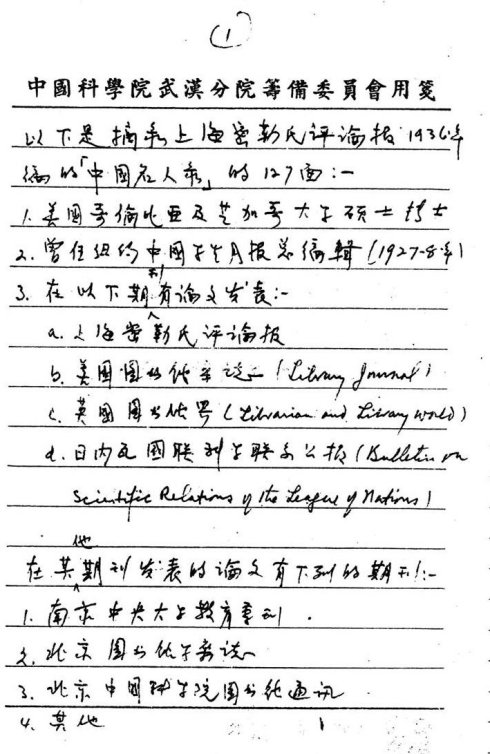 (1)
中國科學院武漢分院籌備委員會用箋
以下是摘录上海密勒氏评论报1936年
编的「中國名人录」的127面:—
1. 美國哥倫比亚及芝加哥大学硕士博士
2. 曾任纽约中國学生月报总编輯(1927-8年)
3. 在以下期刊有论文发表:—
a. 上海密勒氏评论报
b. 美国图书馆杂誌 (Library Journal)
c. 英國图书馆界 (Librarian and Library World)
d. 日内瓦國联科学联系公报 (Bulletin on
Scientific Relations of the League of Nations)
在其他期刊发表的论文有下列的期刊:—
1. 南京中央大学教育季刊.
2. 北京图书馆学杂誌
3. 北京中國科学院图书馆通讯
4. 其他